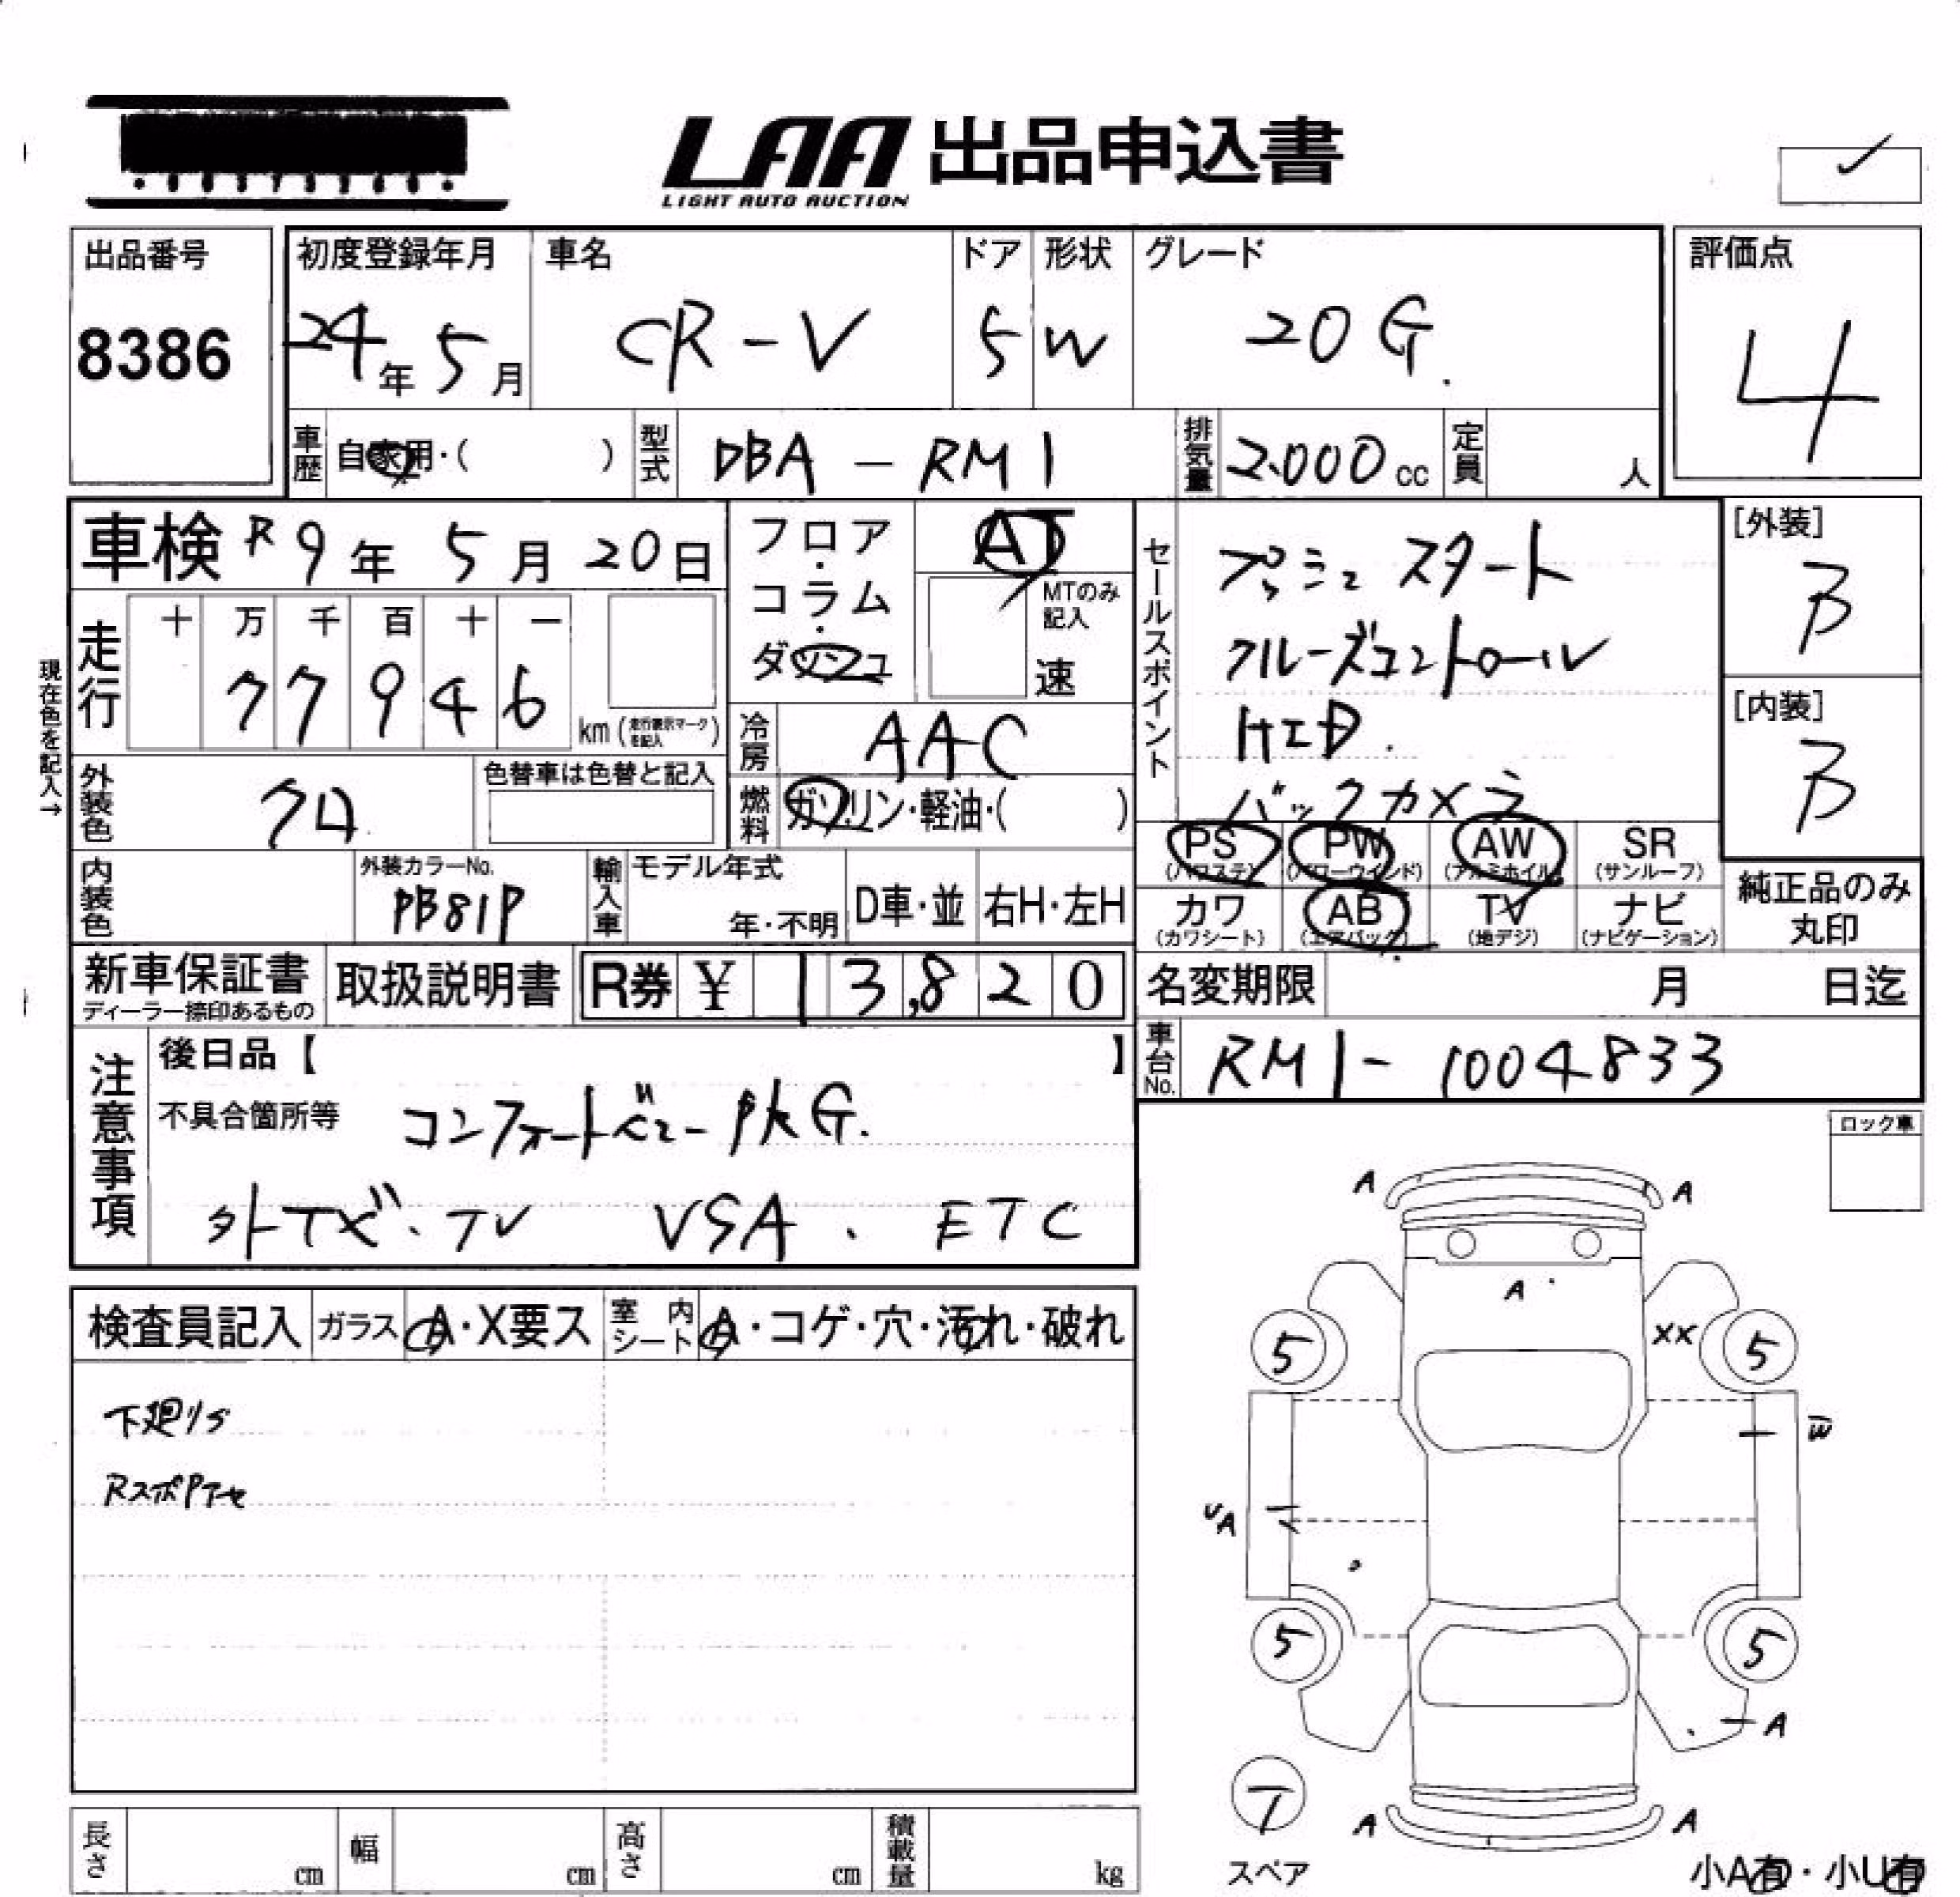 LAA 出品申込書
LIGHT AUTO AUCTION
出品番号
8386
初度登録年月
24年 5月
車名
CR-V
ドア
5
形状
W
グレード
20G.
評価点
4
車歴 自家用・( )
型式 DBA-RM1
排気量 2.000cc
定員 人
車検 R9年 5月 20日
走行
十 万 千 百 十 一
7 7 9 4 6
km (走行表示マークを記入)
現在色を記入→
フロア・コラム・ダッシュ
AT
MTのみ記入
速
セールスポイント
プッシュスタート
クルーズコントロール
HID.
バックカメラ
[外装]
B
[内装]
B
冷房 AAC
燃料 ガソリン・軽油・( )
外装色 クロ
色替車は色替と記入
内装色
外装カラーNo.
PB81P
輸入車
モデル年式
年・不明
D車・並
右H・左H
PS
(パワステ)
PW
(パワーウインド)
AW
(アルミホイル)
SR
(サンルーフ)
カワ
(カワシート)
AB
(エアバック)
TV
(地デジ)
ナビ
(ナビゲーション)
純正品のみ
丸印
新車保証書
ディーラー捺印あるもの
取扱説明書
R券 ¥ 13,820
名変期限 月 日迄
車台No. RM1-1004833
注意事項
後日品【 】
不具合箇所等
コンフォートビューPKG.
外ナビ・TV VSA. ETC
ロック車
検査員記入 ガラス A・X要ス 室内シート A・コゲ・穴・汚れ・破れ
下廻りS
A A
A
5 XX 5
W
UA
5 5
A
7
スペア
A A
長さ cm 幅 cm 高さ cm 積載量 kg
小A有・小U有